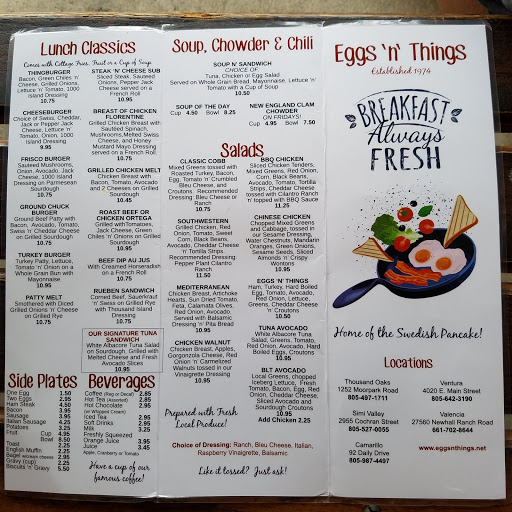 Lunch Classics
Comes with Cottage Fries, Fruit or a Cup of Soup
THINGBURGER
Bacon, Green Chiles 'n'
Cheese, Grilled Onions,
Lettuce 'n' Tomato, 1000
Island Dressing
10.75
CHEESEBURGER
Choice of Swiss, Cheddar,
Jack or Pepper Jack
Cheese, Lettuce 'n'
Tomato, Onion, 1000
Island Dressing
9.95
FRISCO BURGER
Sauteed Mushrooms,
Onion, Avocado, Jack
Cheese, 1000 Island
Dressing on Parmesan
Sourdough
10.75
GROUND CHUCK
BURGER
Ground Beef Patty with
Bacon, Avocado, Tomato,
Swiss 'n' Cheddar Cheese
on Grilled Sourdough
10.95
TURKEY BURGER
Turkey Patty, Lettuce,
Tomato 'n' Onion on a
Whole Grain Bun with
Mayonnaise
10.95
PATTY MELT
Smothered with Diced
Grilled Onions 'n' Cheese
on Grilled Rye
10.75
STEAK 'N' CHEESE SUB
Sliced Steak, Sauteed
Onions, Pepper Jack
Cheese, Served on a
French Roll
10.95
BREAST OF CHICKEN
FLORENTINE
Grilled Chicken Breast with
Sauteed Spinach,
Mushrooms, Melted Swiss
Cheese, and Honey
Mustard Mayo Dressing
served on a French Roll.
10.75
GRILLED CHICKEN MELT
Chicken Breast with
Bacon, Tomato, Avocado
and 2 Cheeses on Grilled
Sourdough
10.45
ROAST BEEF OR
CHICKEN ORTEGA
Grilled with Tomatoes,
Jack Cheese, Green
Chiles 'n' Onions on Grilled
Sourdough
10.95
BEEF DIP AU JUS
With Creamed Horseradish
on a French Roll
10.95
RUEBEN SANDWICH
Corned Beef, Sauerkraut
'n' Swiss on Grilled Rye
with Thousand Island
Dressing
10.95
OUR SIGNATURE TUNA
SANDWICH
White Albacore Tuna Salad
on Sourdough, Grilled with
Melted Cheese and Fresh
Avocado Slices
10.95
Side Plates
One Egg 1.50
Two Eggs 2.95
Ham Steak 4.50
Bacon 3.95
Sausage 3.95
Italian Sausage 4.25
Potatoes 3.95
Soup Cup 4.50
Bowl 8.50
Toast 2.25
English Muffin 2.25
Bagel w/cream cheese 2.95
Gravy (cup) 2.25
Biscuits 'n' Gravy 5.50
Beverages
Coffee (Reg or Decaf) 2.95
Hot Tea (Assorted) 2.95
Hot Chocolate 2.95
(w/ Whipped Cream)
Iced Tea 2.95
Soft Drinks 2.95
Milk 3.25
Freshly Squeezed
Orange Juice 3.95
Juice 3.45
Apple, Cranberry or Tomato
Have a cup of our
famous coffee!
Soup, Chowder & Chili
SOUP N' SANDWICH
CHOICE OF
Tuna, Chicken or Egg Salad
Served on Whole Grain Bread, Mayonnaise, Lettuce 'n'
Tomato with a Cup of Soup
10.50
SOUP OF THE DAY
Cup 4.50 Bowl 8.25
NEW ENGLAND CLAM
CHOWDER
ON FRIDAYS!
Cup 4.95 Bowl 7.50
Salads
CLASSIC COBB
Mixed Greens tossed with
Roasted Turkey, Bacon,
Egg, Tomato 'n' Crumbled
Bleu Cheese, and
Onions. Recommended
Dressing: Bleu Cheese or
Ranch
10.95
SOUTHWESTERN
Grilled Chicken, Red
Onion, Mixed Greens,
Tomato, Sweet
Corn, Black Beans,
Avocado, Cheddar Cheese
'n' Tortilla Strips
Recommended Dressing:
Pepper Plant Cilantro
Ranch
11.50
MEDITERRANEAN
Chicken Breast, Artichoke
Hearts, Sun Dried Tomato,
Feta, Calamata Olives,
Red Onion, Avocado,
Served with Balsamic
Dressing 'n' Pita Bread
10.95
CHICKEN WALNUT
Chicken Breast, Apples,
Gorgonzola Cheese, Red
Onion 'n' Caramelized
Walnuts tossed in our
Vinaigrette Dressing
10.95
BBQ CHICKEN
Sliced Chicken Tenders,
Mixed Greens, Red Onion,
Corn, Black Beans,
Avocado, Tomato, Tortilla
Strips, Cheddar Cheese
tossed with Cilantro Ranch
'n' topped with BBQ Sauce
11.25
CHINESE CHICKEN
Chopped Mixed Greens
and Cabbage, tossed in
our Sesame Dressing,
Water Chestnuts, Mandarin
Oranges, Green Onions,
Sesame Seeds, Sliced
Almonds 'n' Crispy
Wontons
10.95
EGGS 'N' THINGS
Ham, Turkey, Hard Boiled
Egg, Tomato, Avocado,
Red Onion, Lettuce,
Greens, Cheddar Cheese
'n' Croutons
10.50
TUNA AVOCADO
White Albacore Tuna
Salad, Greens, Tomato,
Red Onion, Avocado, Hard
Boiled Eggs, Croutons
10.95
BLT AVOCADO
Local Greens, chopped
Iceberg Lettuce, Fresh
Tomato, Bacon, Egg, Red
Onion, Cheddar Cheese,
Sliced Avocado and
Sourdough Croutons
10.95
Add Chicken 2.25
Prepared with Fresh
Local Produce!
Choice of Dressing: Ranch, Bleu Cheese, Italian,
Raspberry Vinaigrette, Balsamic
Like it tossed? Just ask!
Eggs 'n' Things
Established 1974
BREAKFAST
Always
FRESH
Home of the Swedish Pancake!
Locations
Thousand Oaks
1252 Moorpark Road
805-497-1711
Ventura
4020 E. Main Street
805-642-3190
Simi Valley
2955 Cochran Street
805-527-0055
Valencia
27560 Newhall Ranch Road
661-702-8644
Camarillo
92 Daily Drive
805-987-4497
www.eggsnthings.net